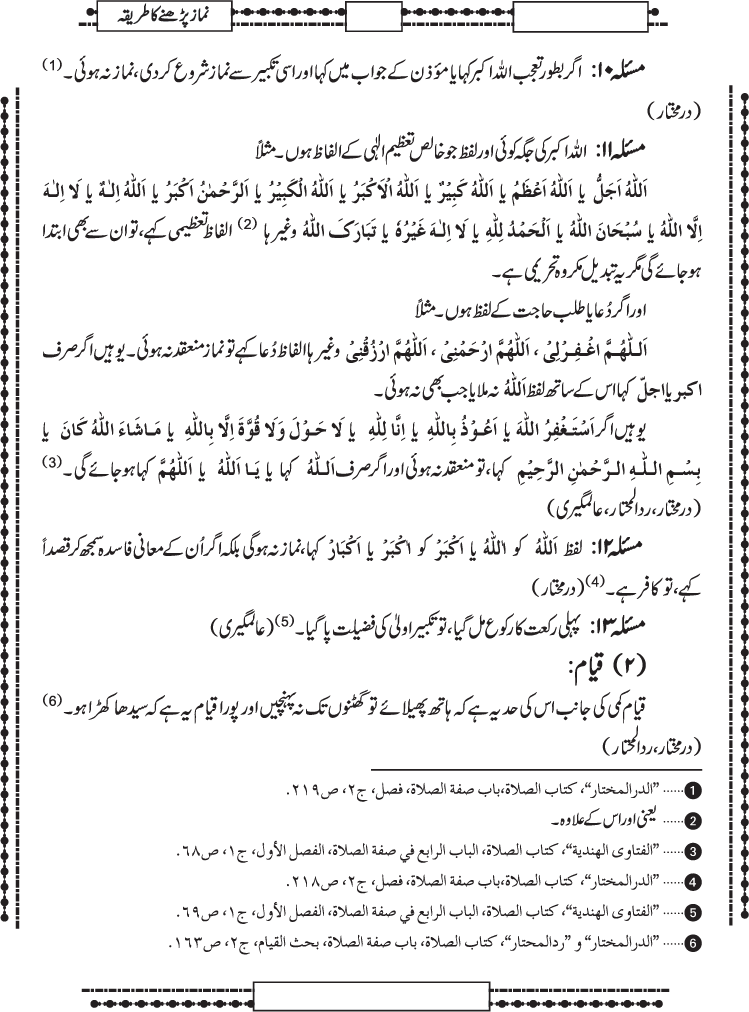 نماز پڑھنے کا طریقہ
مسئلہ ۱۰: اگر بطور تعجب اللہ اکبر کہا یا مؤذن کے جواب میں کہا اور اسی تکبیر سے نماز شروع کر دی، نماز نہ ہوئی۔ (1)
(درمختار)
مسئلہ ۱۱: اللہ اکبر کی جگہ کوئی اور لفظ جو خالص تعظیم الٰہی کے الفاظ ہوں۔ مثلاً
اَللہُ اَجَلُّ یا اَللہُ اَعْظَمُ یا اَللہُ کَبِیْرٌ یا اَللہُ الْاَکْبَرُ یا اَللہُ الْکَبِیْرُ یا اَلرَّحْمٰنُ اَکْبَرُ یا اَللہُ اِلٰـہٌ یا لَا اِلٰـہَ
اِلَّا اللہُ یا سُبْحَانَ اللہُ یا اَلْحَمْدُ لِلّٰہِ یا لَا اِلٰـہَ غَیْرُہٗ یا تَبَارَکَ اللہُ وغیرہا (2) الفاظ تعظیمی کہے، تو ان سے بھی ابتدا
ہو جائے گی مگر یہ تبدیل مکروہ تحریمی ہے۔
اور اگر دُعا یا طلب حاجت کے لفظ ہوں۔ مثلاً
اَللّٰہُمَّ اغْفِرْلِیْ ، اَللّٰہُمَّ ارْحَمْنِیْ ، اَللّٰہُمَّ ارْزُقْنِیْ وغیرہا الفاظ دُعا کہے تو نماز منعقد نہ ہوئی۔ یوہیں اگر صرف
اکبر یا اجلّ کہا اس کے ساتھ لفظ اَللہُ نہ ملایا جب بھی نہ ہوئی۔
یوہیں اگر اَسْتَغْفِرُ اللہَ یا اَعُوْذُ بِاللہِ یا اِنَّا لِلّٰہِ یا لَا حَوْلَ وَلَا قُوَّۃَ اِلَّا بِاللہِ یا مَاشَاءَ اللہُ کَانَ یا
بِسْمِ اللہِ الرَّحْمٰنِ الرَّحِیْمِ کہا، تو منعقد نہ ہوئی اور اگر صرف اَللہُ کہا یا یَا اَللہُ یا اَللّٰہُمَّ کہا ہو جائے گی۔ (3)
(درمختار، ردالمحتار، عالمگیری)
مسئلہ ۱۲: لفظ اَللہُ کو اٰللہُ یا اَکْبَرْ کو اٰکْبَرْ یا اَکْبَارْ کہا، نماز نہ ہوگی بلکہ اگر اُن کے معانی فاسدہ سمجھ کر قصداً
کہے، تو کافر ہے۔ (4) (درمختار)
مسئلہ ۱۳: پہلی رکعت کا رکوع مل گیا، تو تکبیر اولیٰ کی فضیلت پا گیا۔ (5) (عالمگیری)
(۲) قیام:
قیام کمی کی جانب اس کی حد یہ ہے کہ ہاتھ پھیلائے تو گھٹنوں تک نہ پہنچیں اور پورا قیام یہ ہے کہ سیدھا کھڑا ہو۔ (6)
(درمختار، ردالمحتار)
1 ...... ”الدرالمختار“، کتاب الصلاۃ، باب صفۃ الصلاۃ، فصل، ج۲، ص۲۱۹.
2 ...... یعنی اور اس کے علاوہ۔
3 ...... ”الفتاوی الھندیۃ“، کتاب الصلاۃ، الباب الرابع في صفۃ الصلاۃ، الفصل الأول، ج۱، ص۶۸.
4 ...... ”الدرالمختار“، کتاب الصلاۃ، باب صفۃ الصلاۃ، فصل، ج۲، ص۲۱۸.
5 ...... ”الفتاوی الھندیۃ“، کتاب الصلاۃ، الباب الرابع في صفۃ الصلاۃ، الفصل الأول، ج۱، ص۶۹.
6 ...... ”الدرالمختار“ و ”ردالمحتار“، کتاب الصلاۃ، باب صفۃ الصلاۃ، بحث القیام، ج۲، ص۱۶۳.